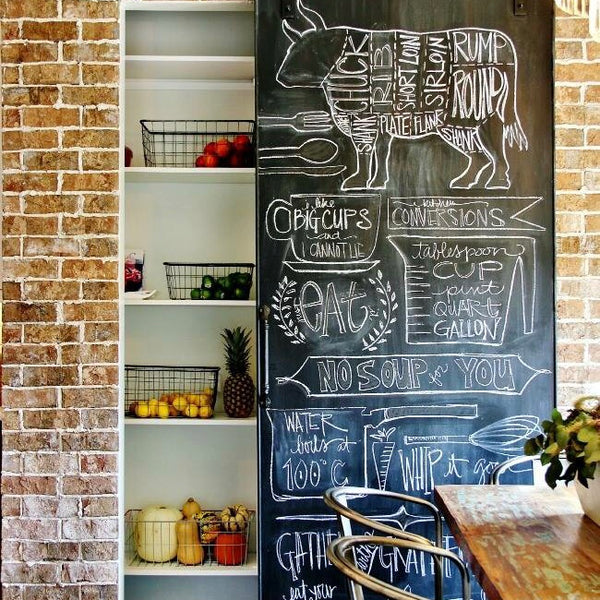 CHUCK RIB SHORT LOIN SIRLOIN RUMP
ROUND
SHANK PLATE FLANK SHANK
i like
BIG CUPS
and
I CANNOT LIE
kitchen
CONVERSIONS
tablespoon
CUP
pint
QUART
GALLON
EAT
NO SOUP for YOU
WATER
boils at
100°C
WHIP it go
GATHER
eat your